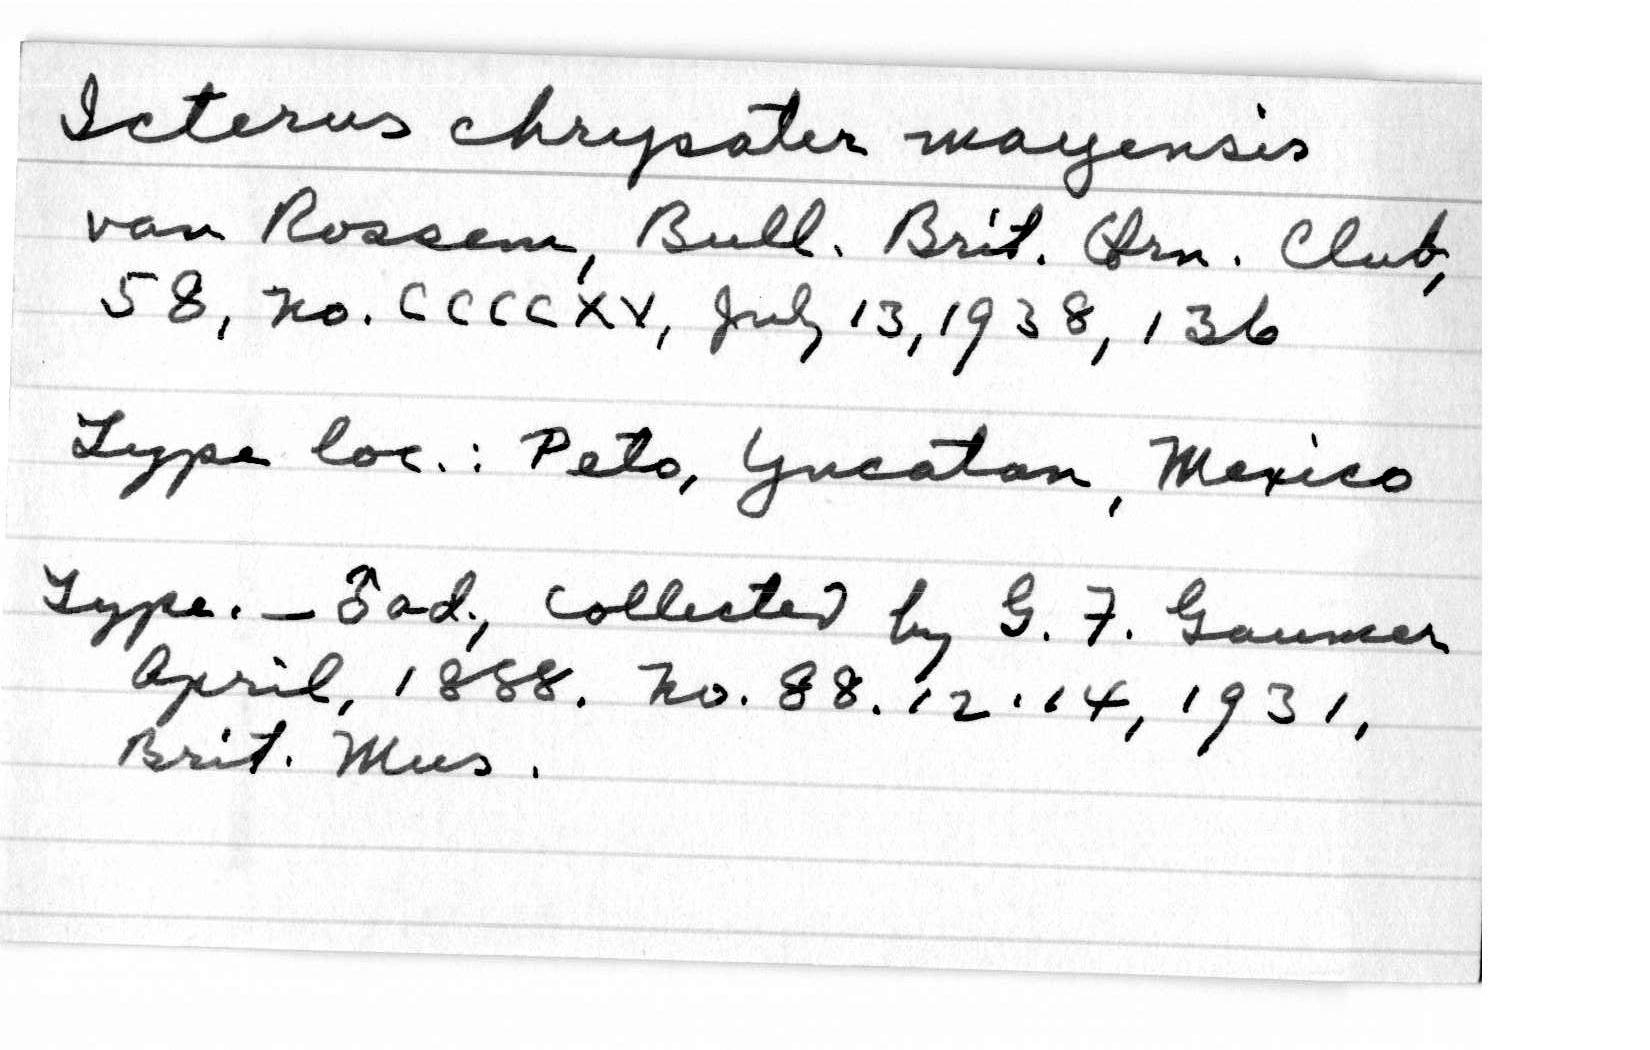 Icterus chrysater mayensis
van Rossem, Bull. Brit. Orn. Club,
58, no. CCCCXV, July 13, 1938, 136
Type loc.: Peto, Yucatan, Mexico
Type. — ♂ ad., collected by G. F. Gaumer
April, 1888. No. 88.12.14, 1931,
Brit. Mus.